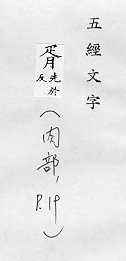 五經文字
胥先於反
(肉部, P.19)